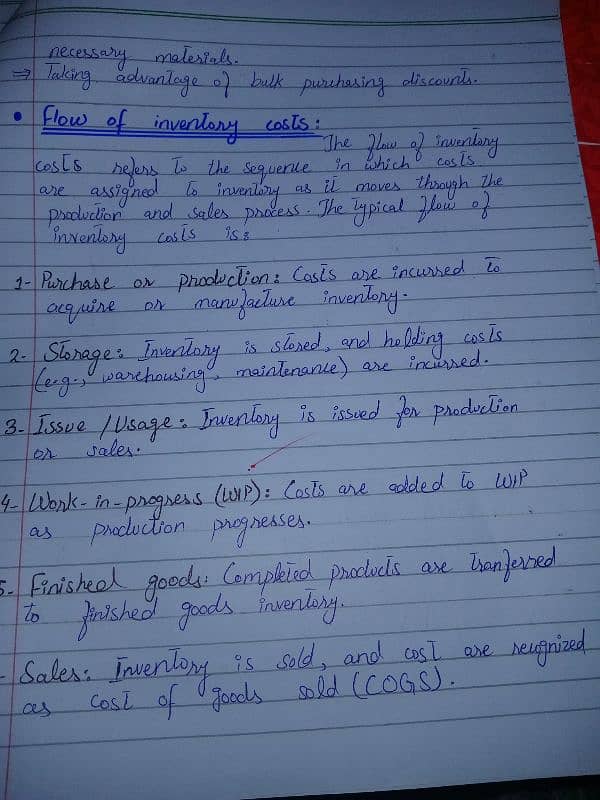 necessary materials.
⇒ Taking advantage of bulk purchasing discounts.
• Flow of inventory costs:
The flow of inventory
costs refers to the sequence in which costs
are assigned to inventory as it moves through the
production and sales process. The typical flow of
inventory costs is:
1- Purchase or production: Costs are incurred to
acquire or manufacture inventory.
2- Storage: Inventory is stored, and holding costs
(e.g., warehousing, maintenance) are incurred.
3- Issue / Usage: Inventory is issued for production
or sales.
4- Work-in-progress (WIP): Costs are added to WIP
as production progresses.
5- Finished goods: Completed products are tranferred
to finished goods inventory.
- Sales: Inventory is sold, and cost are reugnized
as cost of goods sold (COGS).